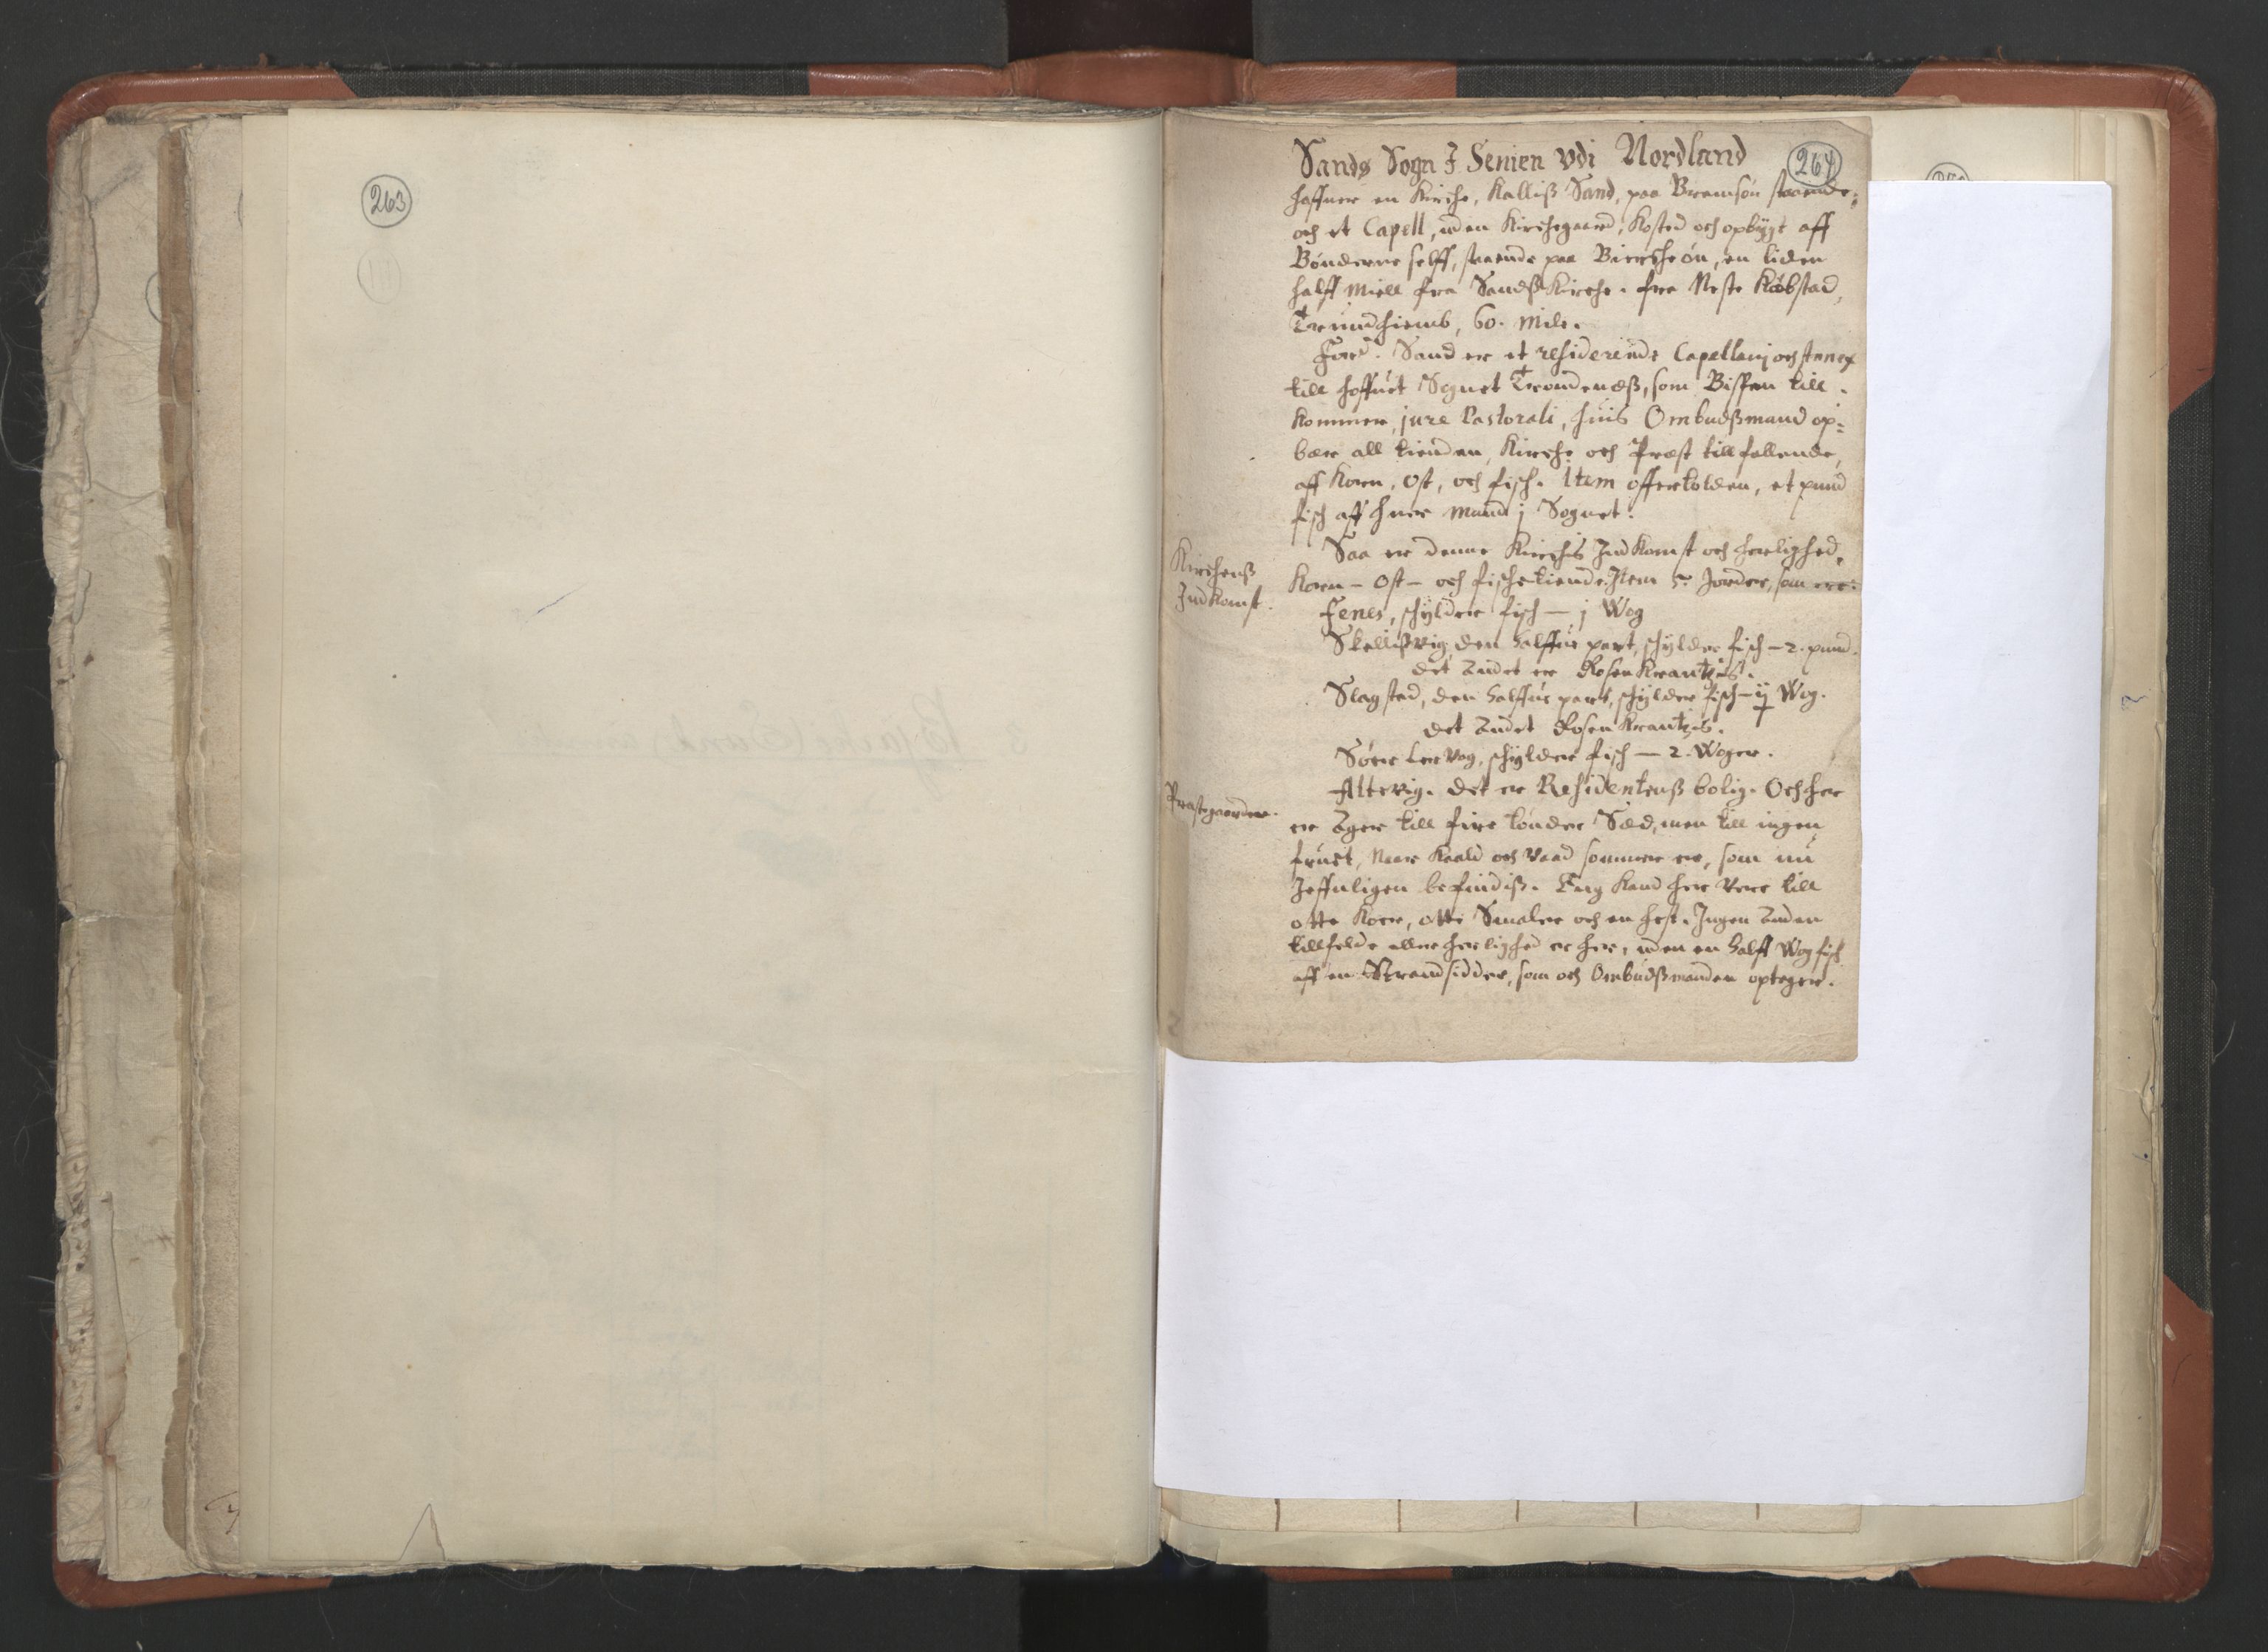 263
264
Sands Sogn I Senien vdi Nordland
haffuer en Kirche, Kalliß Sand, paa Bramsøn staaende;
och et Capell, uden Kirchegaard, Kosted och opbygt aff
Bønderne selff, staaende paa Biercheøn, en liden
halff Miell fra Sandß Kirche. fra Neste Købstad,
Trundhiemb, 60. Mile.
Ford. Sand er et residerende Capellanj och Annex
till hoffuet Sognet Trondenæß, som Bispen till-
kommer, jure Pastorali, huis Ombudßmand op-
bær all tienden, Kirche och Præst tillfallende,
aff Korn, Ost, och fisch. Item offertolden, et pund
fisch aff huer Mand j Sognet.
Kirchens
Indkomst.
Saa er denne Kirchis Indkomst och herlighed,
Korn- Ost- och fischetiende. Item 5. Jorder, som ere:
Fenes, schylder fisch — j Wog
Skellißvig, den halffue part, schylder fisch — 2. pund.
det andet er Rosenkrantzis.
Slagstad, den halffue part, schylder fisch — ij Wog.
det andet Rosenkrantzis.
Sørr Ler Vog, schylder fisch — 2. Woger.
Præstegaarden.
Altevig. det er Residentenß bolig. Och her
er Ager till fire tønder Sæd, men till ingen
fruct, Naar Kaald och Vaad sommer er, som nu
Jeffnligen befindiß. Eng Kand her Vere till
otte Kiør, otte Smaler och en hest. Ingen anden
tillfelde eller herlighed er her, uden en halff Wog fisch
aff en Strandsidder, som och Ombudßmanden optager.